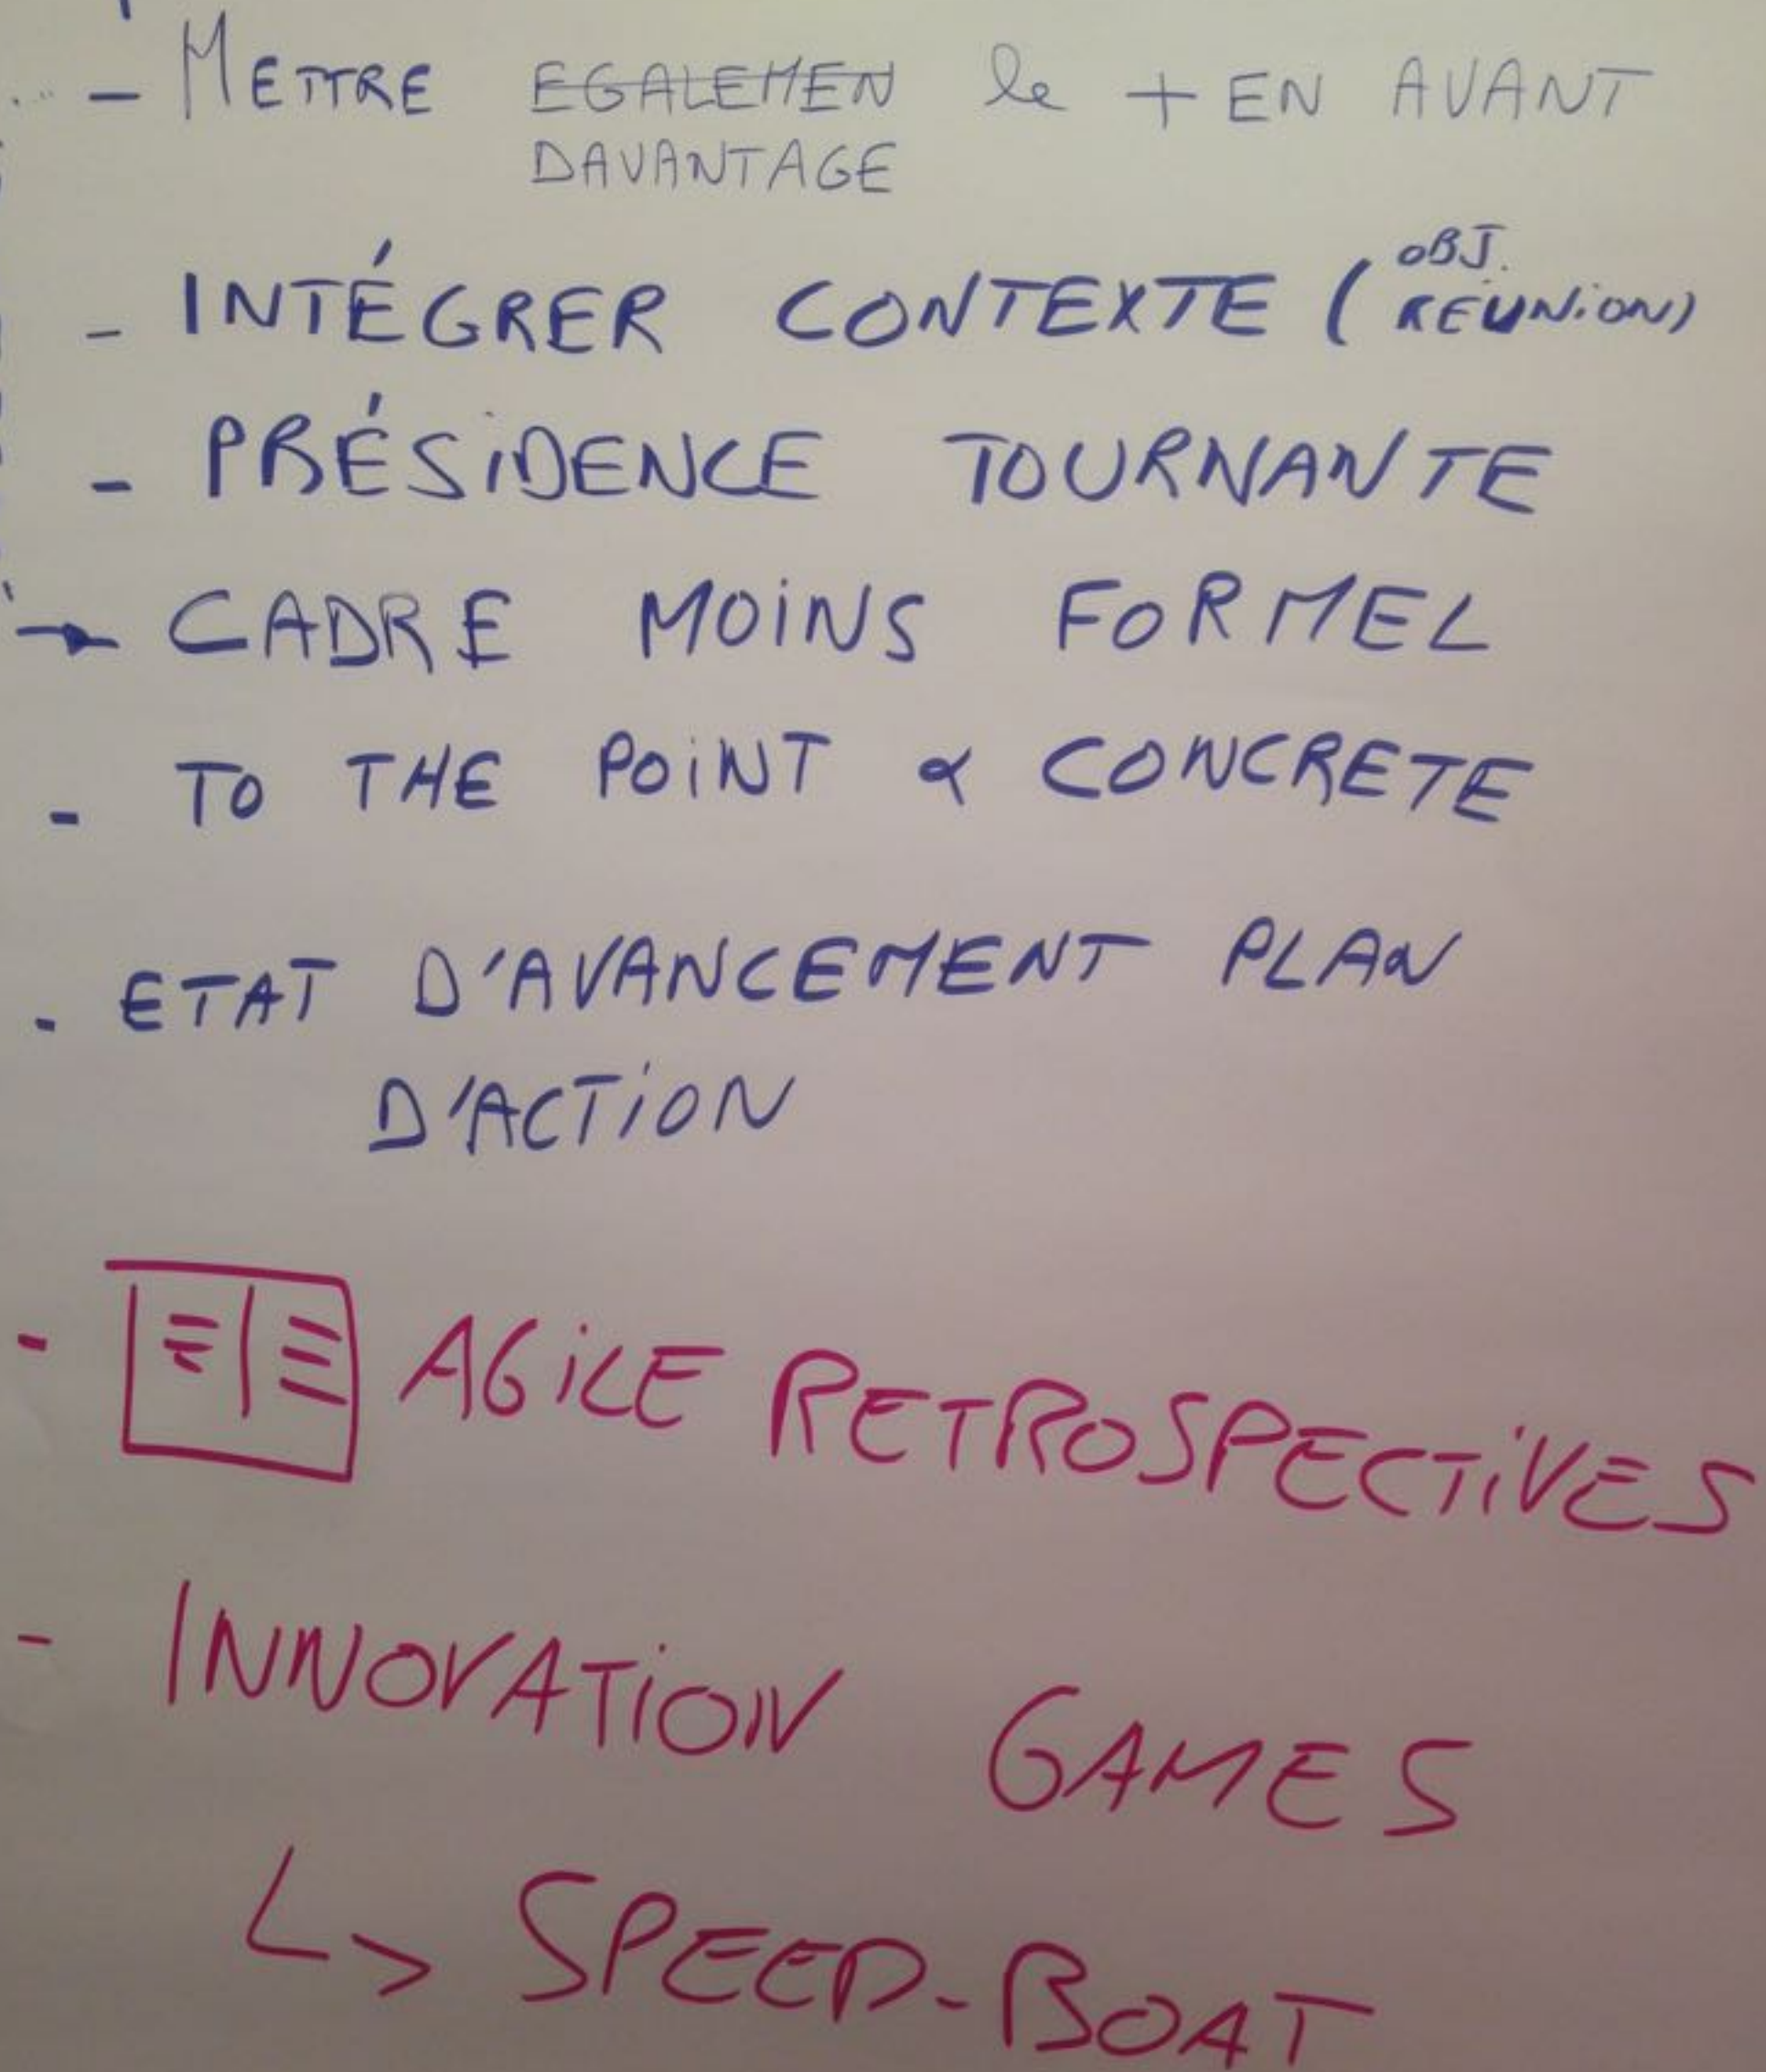 - METTRE EGALEMEN le + EN AVANT
DAVANTAGE
- INTÉGRER CONTEXTE (OBJ. REUNION)
- PRÉSIDENCE TOURNANTE
→ CADRE MOINS FORMEL
- TO THE POINT & CONCRETE
- ETAT D'AVANCEMENT PLAN
D'ACTION
- AGILE RETROSPECTIVES
- INNOVATION GAMES
↳ SPEED-BOAT